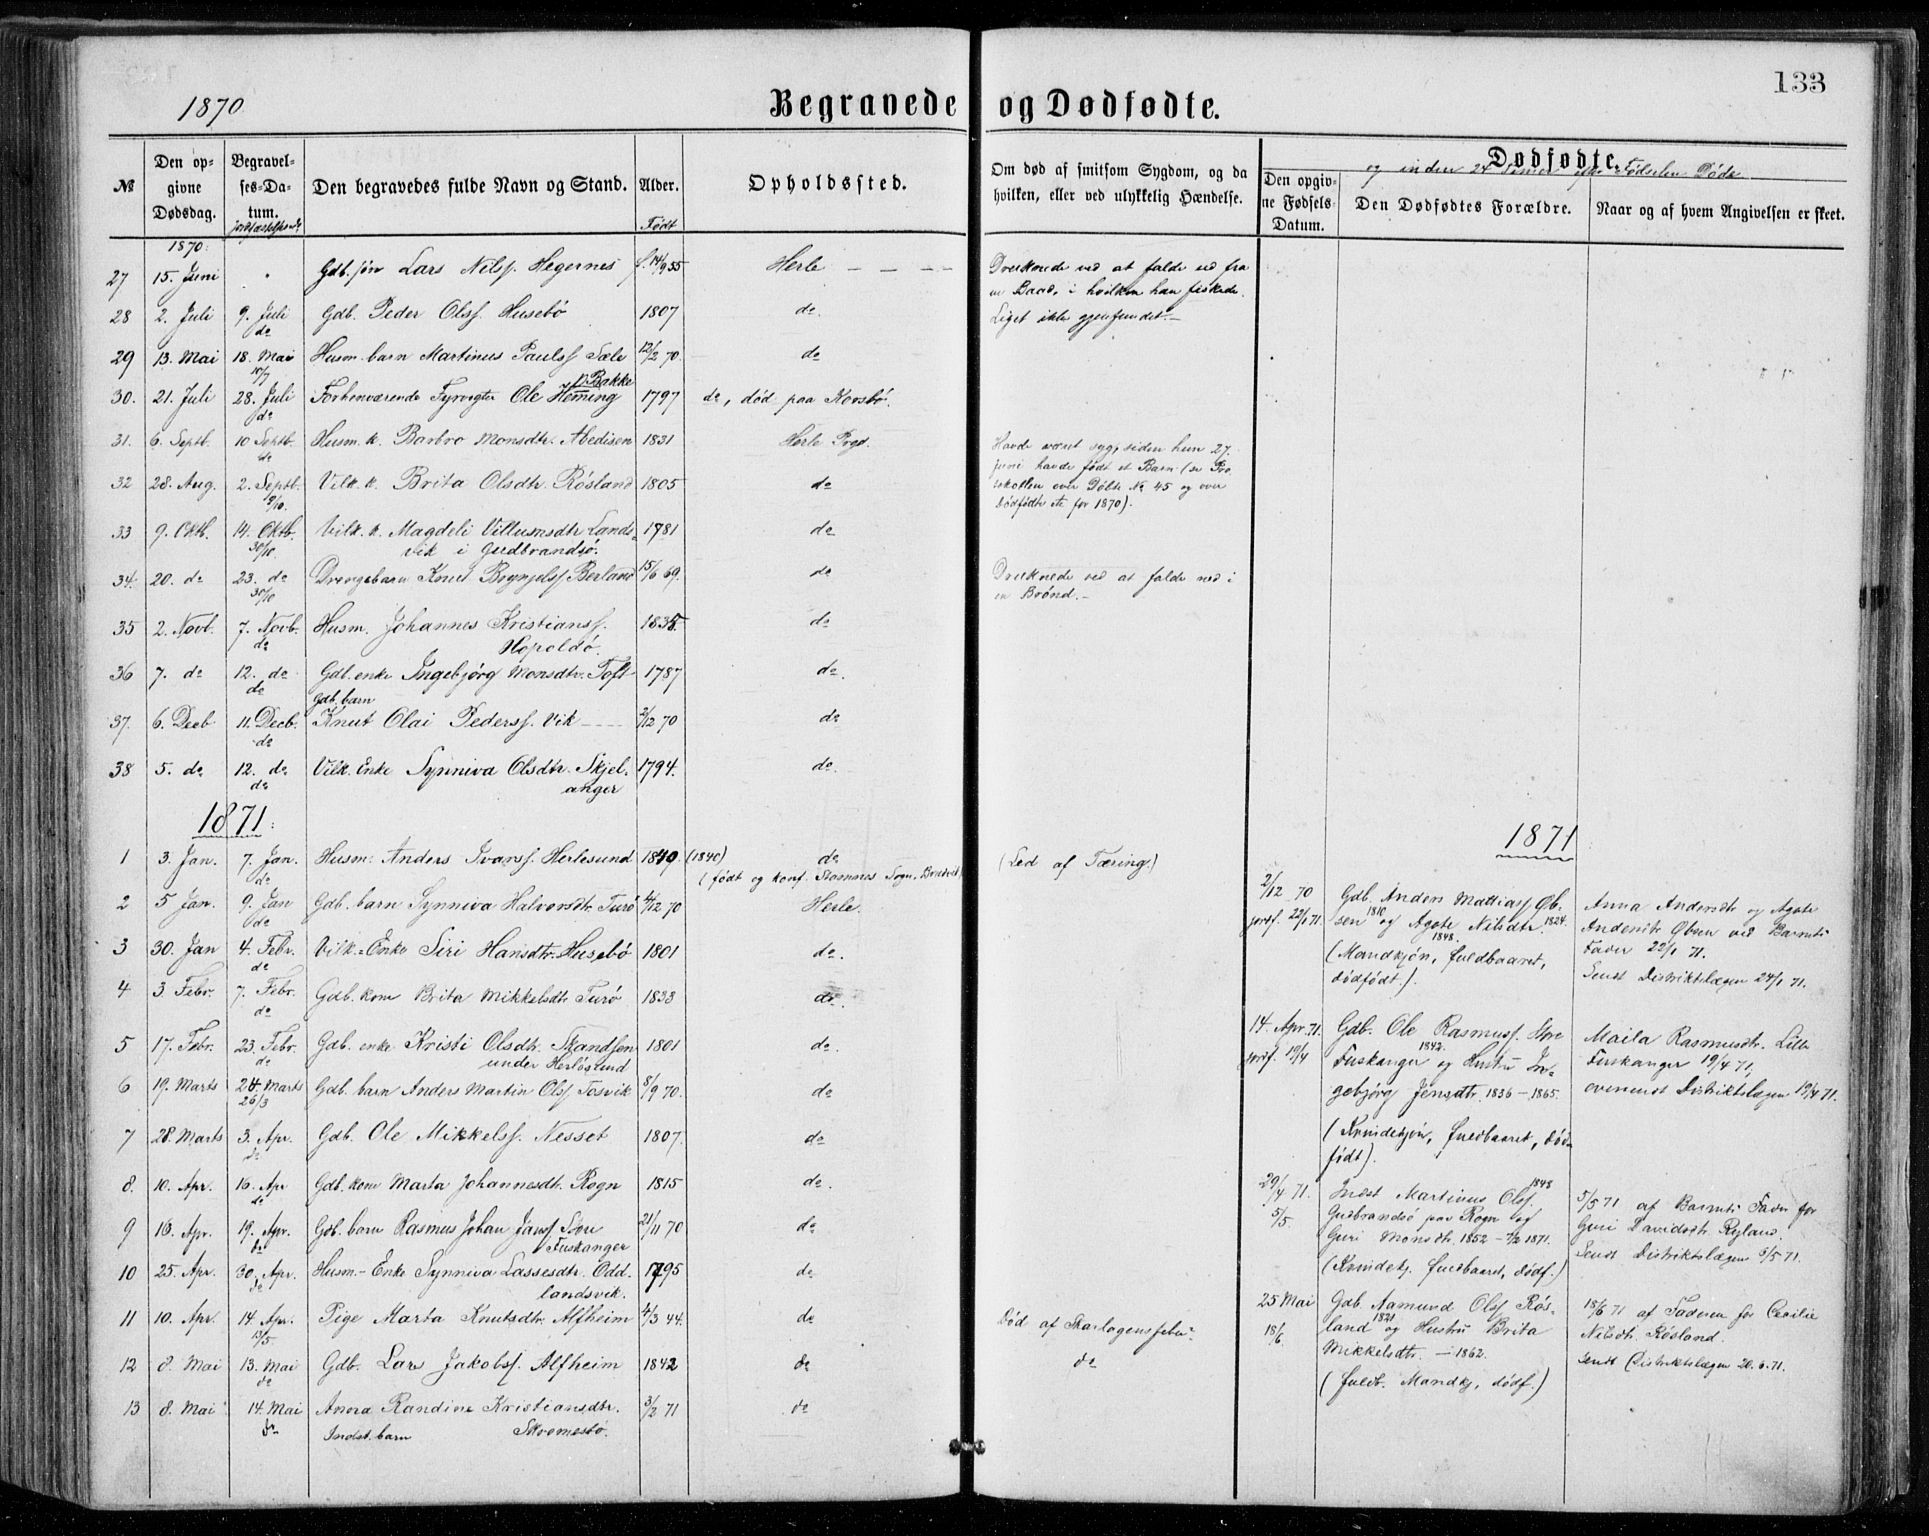 133
1870
Begravede og Dødfødte.
№
Den opgivne Dødsdag.
Begravelses-Datum.
Den begravedes fulde Navn og Stand.
Alder.
Født
Opholdssted.
Om død af smitsom Sygdom, og da hvilken, eller ved ulykkelig Hændelse.
Dødfødte
og inden 24 Timer efter Fødselen Døde
Den opgivne Fødsels-Datum.
Den Dødfødtes Forældre.
Naar og af hvem Angivelsen er skeet.
1870:
27 15. Juni Gdb. søn Lars Nilss. Hegernes f. 14/9 55 Herle Druknede ved at falde ud fra
en Baad, i hvilken han fiskede.
28 2. Juli 9. Juli Gdb. Peder Olss. Husebö 1807 do Liget ikke gjenfundet.—
do
29 13. Mai 18. Mai Husm. barn Martinus Paulss. Sæle 12/2 70. do
10/7
p. Bakke
30. 21. Juli 28. Juli Forhenværende Fyrvogter Ole Heming 1797 do, død paa Korsbö.
do
31. 6. Septb. 10 Septb. Husm. k. Barbro Monsdtr. Abedisen 1831 Herle Prgd. Havde været syg, siden hun 27.
do juni havde født et Barn (se Pro
32 28. Aug. 2. Septb. Vilk. k. Brita Olsdtr. Røsland 1805 do tokollen over Døbte No 45 og over
9/10. Dødfødte etc for 1870).
33 9. Oktb. 14. Oktb. Vilk. k. Magdeli Villumsdtr. Lands- 1781 do
30/10. vik i Gudbrandsö.
34. 20. do 23. do Drengebarn Knut Brynjelss. Berland 15/6 69. do Druknede ved at falde ned i
30/10 en Brönd.—
35 2. Novb. 7. Novb. Husm. Johannes Kristianss. 1835. do
do Hopoldö.
36 7. do 12. do Gdb. enke Ingebjörg Monsdtr. Toft 1787 do.
do Gdb. barn
37. 6. Decb 11. Decb. Knut Olai Pederss. Vik 2/12 70 do
do
38 5. do 12. do Vilk. Enke Synniva Olsdtr. Skjel- 1794. do.
do anger
1871:
1 3. Jan. 7. Jan. Husm. Anders Ivarss. Herlesund 1840. (1840) do (Led af Tæring.)
do (født og konf. Hamnes Sogn,
2 5 Jan. 9. Jan Gdb. barn Synniva Halvorsdtr. Turö 4/12 70 Herle
do
3 30. Jan 4. Febr. Vilk.-Enke Siri Hansdtr. Husebö 1801 do.
do
4 3. Febr. 7. Febr. Gdb. kone Brita Mikkelsdtr. Turö 1833 do.
do
5 17. Febr. 23. Febr. Gdb. enke Kristi Olsdtr. Skandsen 1801 do.
do under Herlösund
6 19. Marts 24 Marts Gdb. barn Anders Martin Olss. Tosvik 8/9 70. do
26/3
7 28. Marts 3. Apr. Gdb. Ole Mikkelss. Nesset 1807. do
do
8. 10. Apr. 16. Apr Gdb. kone Marta Johannesdtr. Rogn 1815 do.
do
9 16. Apr. 19. Apr. Gdb. barn Rasmus Johan Janss. Store 21/11 70 do
do Fuskanger
10 25. Apr. 30. Apr. Husm.-Enke Synniva Lassesdtr. Odd- 1795 do
do landsvik.
11 10. Apr. 14. Apr. Pige Marta Knutsdtr. Alfheim 4/3 44. do Død af Skarlagensfeber
13/5
12 8. Mai 13. Mai Gdb. Lars Jakobss. Alfheim 1842 do do
do
13 8. Mai 14. Mai Anna Randine Kristiansdtr. 3/2 71 do
do Indst. barn Skvernesbö.
1871
2/12 70 Gdb. Anders Mattiass. Öb- Anna Andersdtr og Agate
jordf. 22/1 71. sen 1810 og Agate Nilsdtr. 1824. Andersdtr Öbsen ved Barnets
1848. Fader 22/1 71.
(Mandkjön, fuldbaaret, Sendt Distriktslægen 24/1 71.
dödfödt.).
14. Apr. 71. Gdb. Ole Rasmuss. Store Maila Rasmusdtr. Lille
jordf. 19/4 1842. Fuskanger 19/4 71,
Fuskanger og Hustru In- oversendt Distriktslægen 19/4 71.
gebjörg Jensdtr. 1836 — 1865.
(Kvindekjön, fuldbaaret, död-
födt).
29/4 71. Indst Martinus Olss. 1848 5/5 71 af Barnets Fader for
5/5. Gudbrandsö paa Rogn og Guri Davidsdtr Ryland.
Guri Monsdtr. 1852 — 7/2 1871. Sendt Distriktslægen 5/5 71.
(Kvindekj. fuldbaaret, dödf.)
25 Mai Gdb. Aamund Olss. Rös- 18/6 71 af Faderen for Cecilie
18/6. land 1821 og Hustru Brita Nilsdtr. Rösland.
Mikkelsdtr. — 1862. Sendt Distriktslægen 20.6.71.
(fuldb. Mandkj, dödf.)